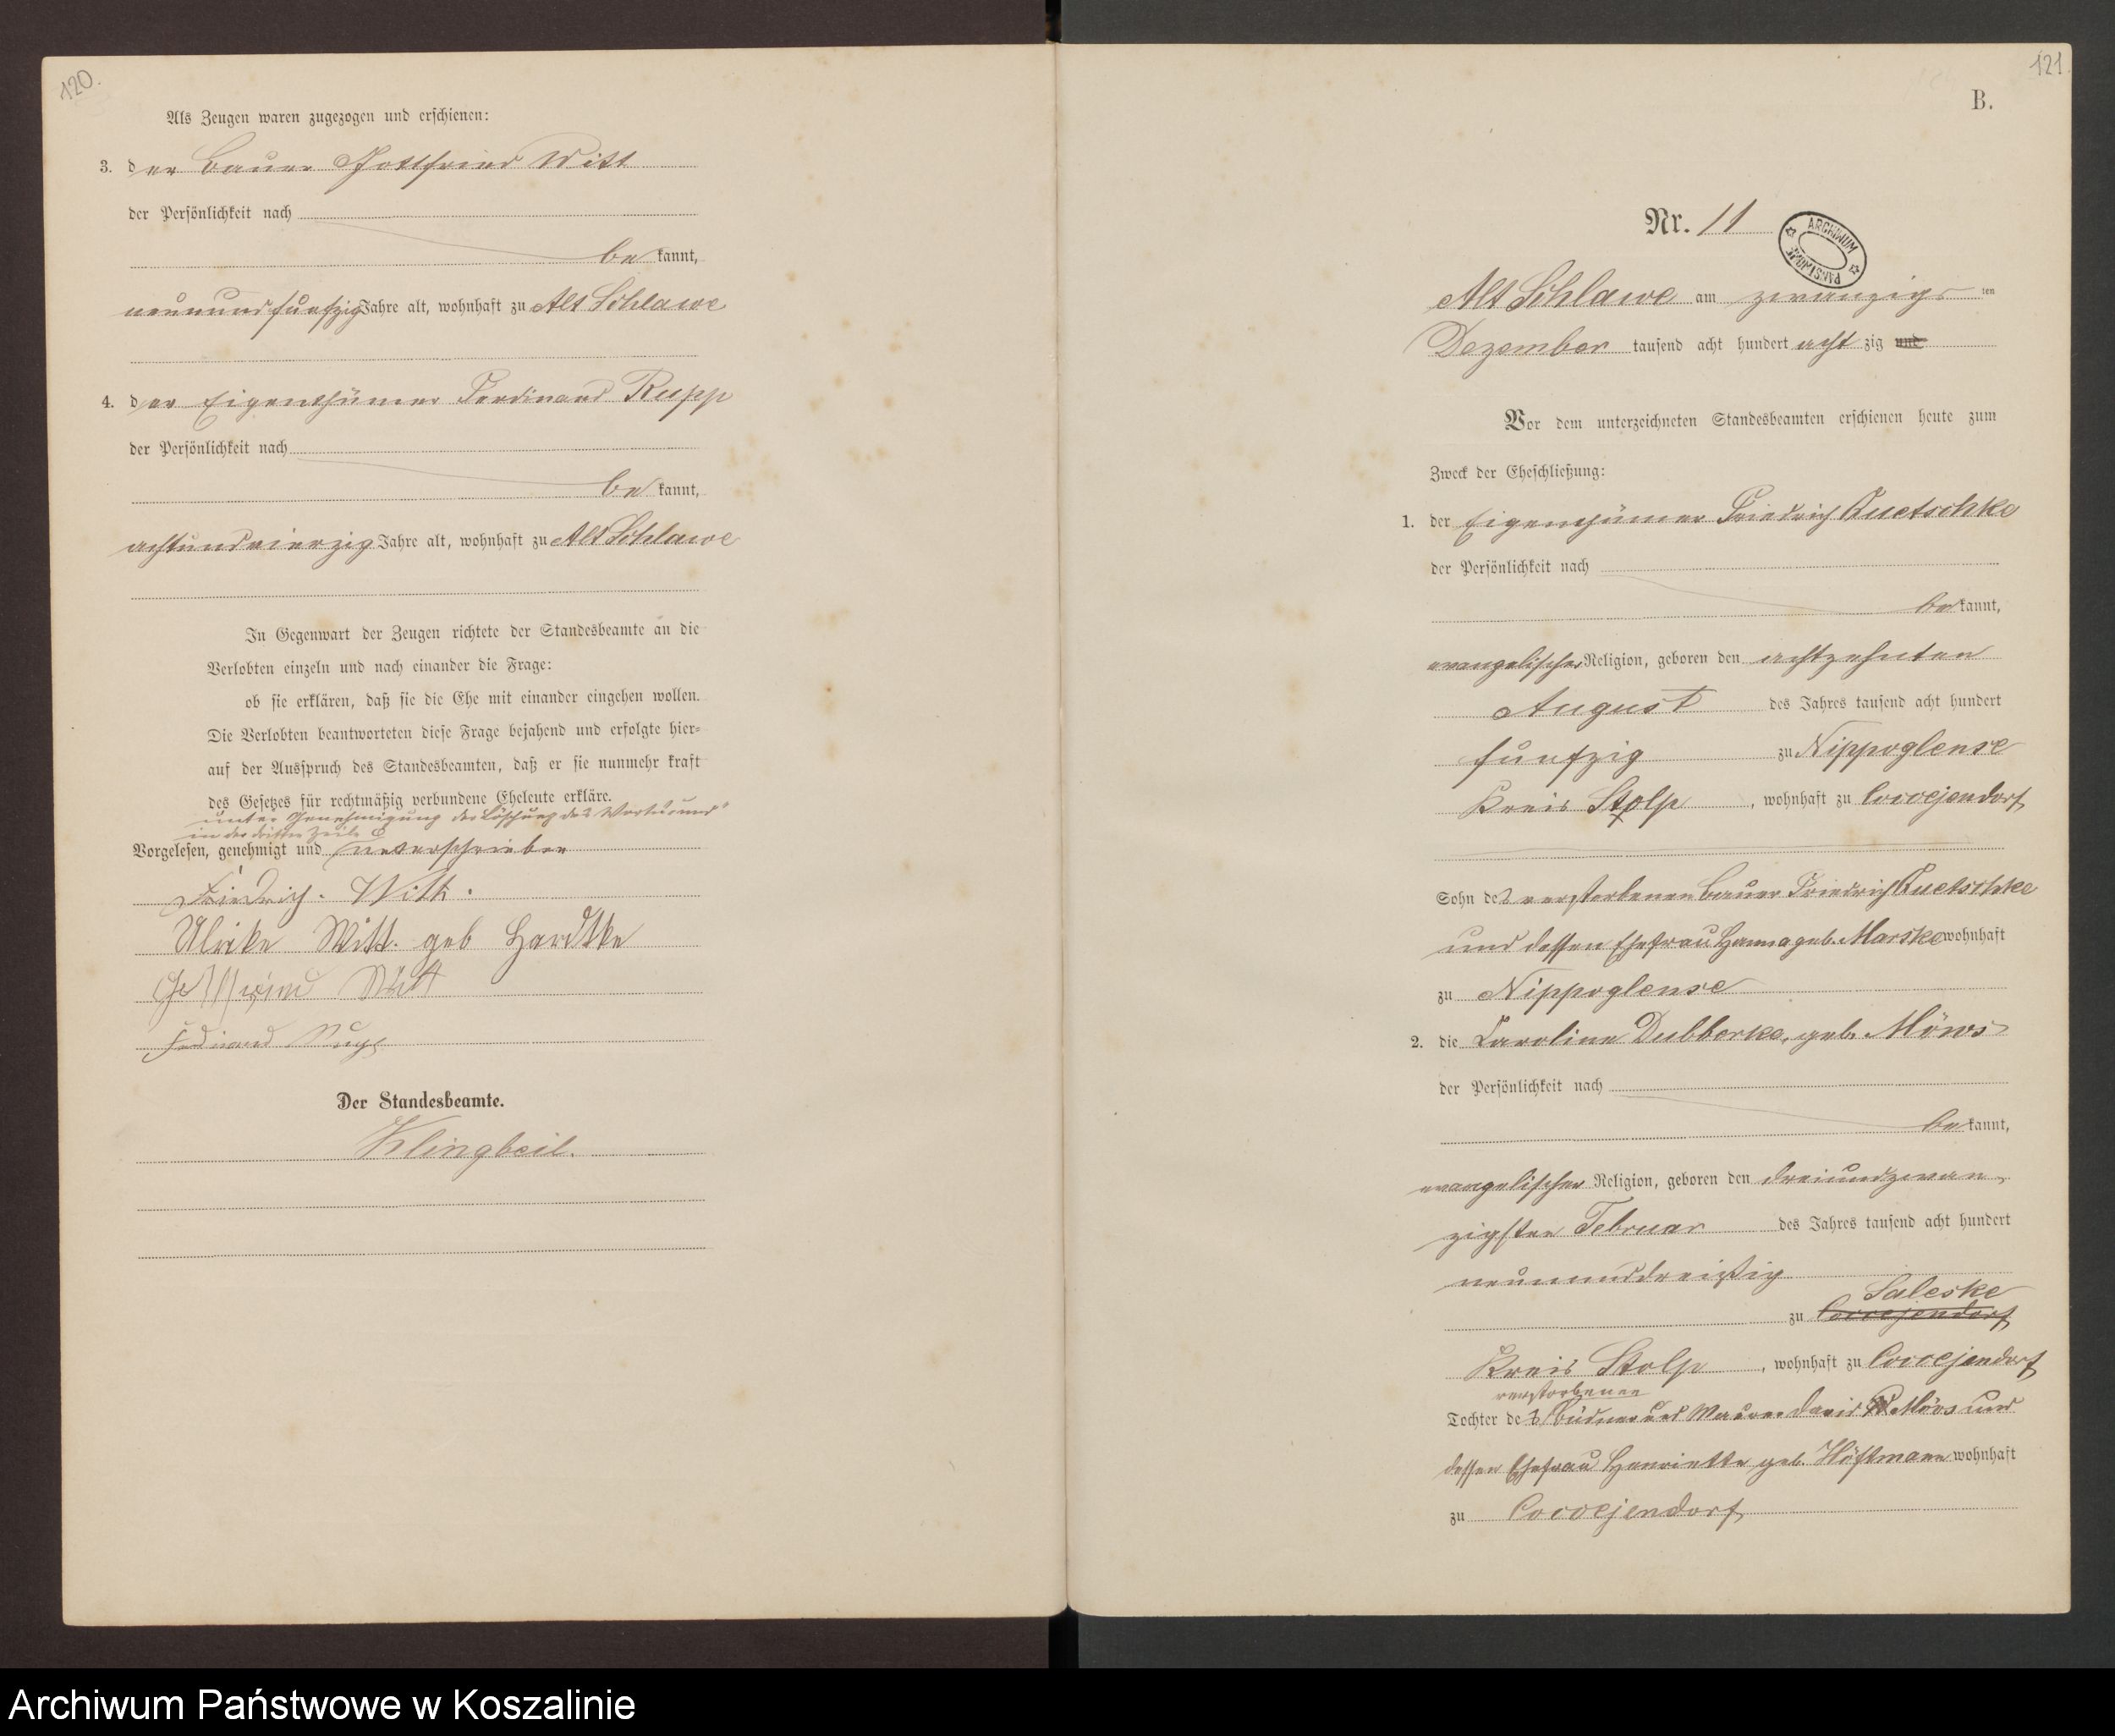 120.
Als Zeugen waren zugezogen und erschienen:
3. der Bauer Gottfried Witt
der Persönlichkeit nach
be kannt,
neunundfünfzig Jahre alt, wohnhaft zu Alt Schlawe
4. der Eigenthümer Ferdinand Rupp
der Persönlichkeit nach
be kannt,
achtundvierzig Jahre alt, wohnhaft zu Alt Schlawe
In Gegenwart der Zeugen richtete der Standesbeamte an die
Verlobten einzeln und nach einander die Frage:
ob sie erklären, daß sie die Ehe mit einander eingehen wollen.
Die Verlobten beantworteten diese Frage bejahend und erfolgte hier-
auf der Ausspruch des Standesbeamten, daß er sie nunmehr kraft
des Gesetzes für rechtmäßig verbundene Eheleute erkläre.
unter Genehmigung der Löschung des Wortes "und"
in der dritten Zeile
Vorgelesen, genehmigt und unterschrieben
Friedrich. Witt.
Ulrike Witt. geb Hardtke
Gottfried Witt
Ferdinand Rupp
Der Standesbeamte.
Klingbeil.
121.
B.
Nr. 11
ARCHIWUM PAŃSTWOWE
Alt Schlawe am zwanzigs ten
Dezember tausend acht hundert acht zig und
Vor dem unterzeichneten Standesbeamten erschienen heute zum
Zweck der Eheschließung:
1. der Eigenthümer Friedrich Quetschke
der Persönlichkeit nach
be kannt,
evangelischer Religion, geboren den achtzehnten
August des Jahres tausend acht hundert
fünfzig zu Nippoglense
Kreis Stolp, wohnhaft zu Coccejendorf
Sohn des verstorbenen Bauer Friedrich Quetschke
und dessen Ehefrau Hanna geb. Marske wohnhaft
zu Nippoglense
2. die Caroline Dubberke, geb. Möws
der Persönlichkeit nach
be kannt,
evangelischer Religion, geboren den dreiundzwan-
zigsten Februar des Jahres tausend acht hundert
neununddreißig
Saleske
zu Coccejendorf
Kreis Stolp, wohnhaft zu Coccejendorf
verstorbenen
Tochter des Büdner und Maurer David Möws und
dessen Ehefrau Henriette geb. Höftmann wohnhaft
zu Coccejendorf
Archiwum Państwowe w Koszalinie